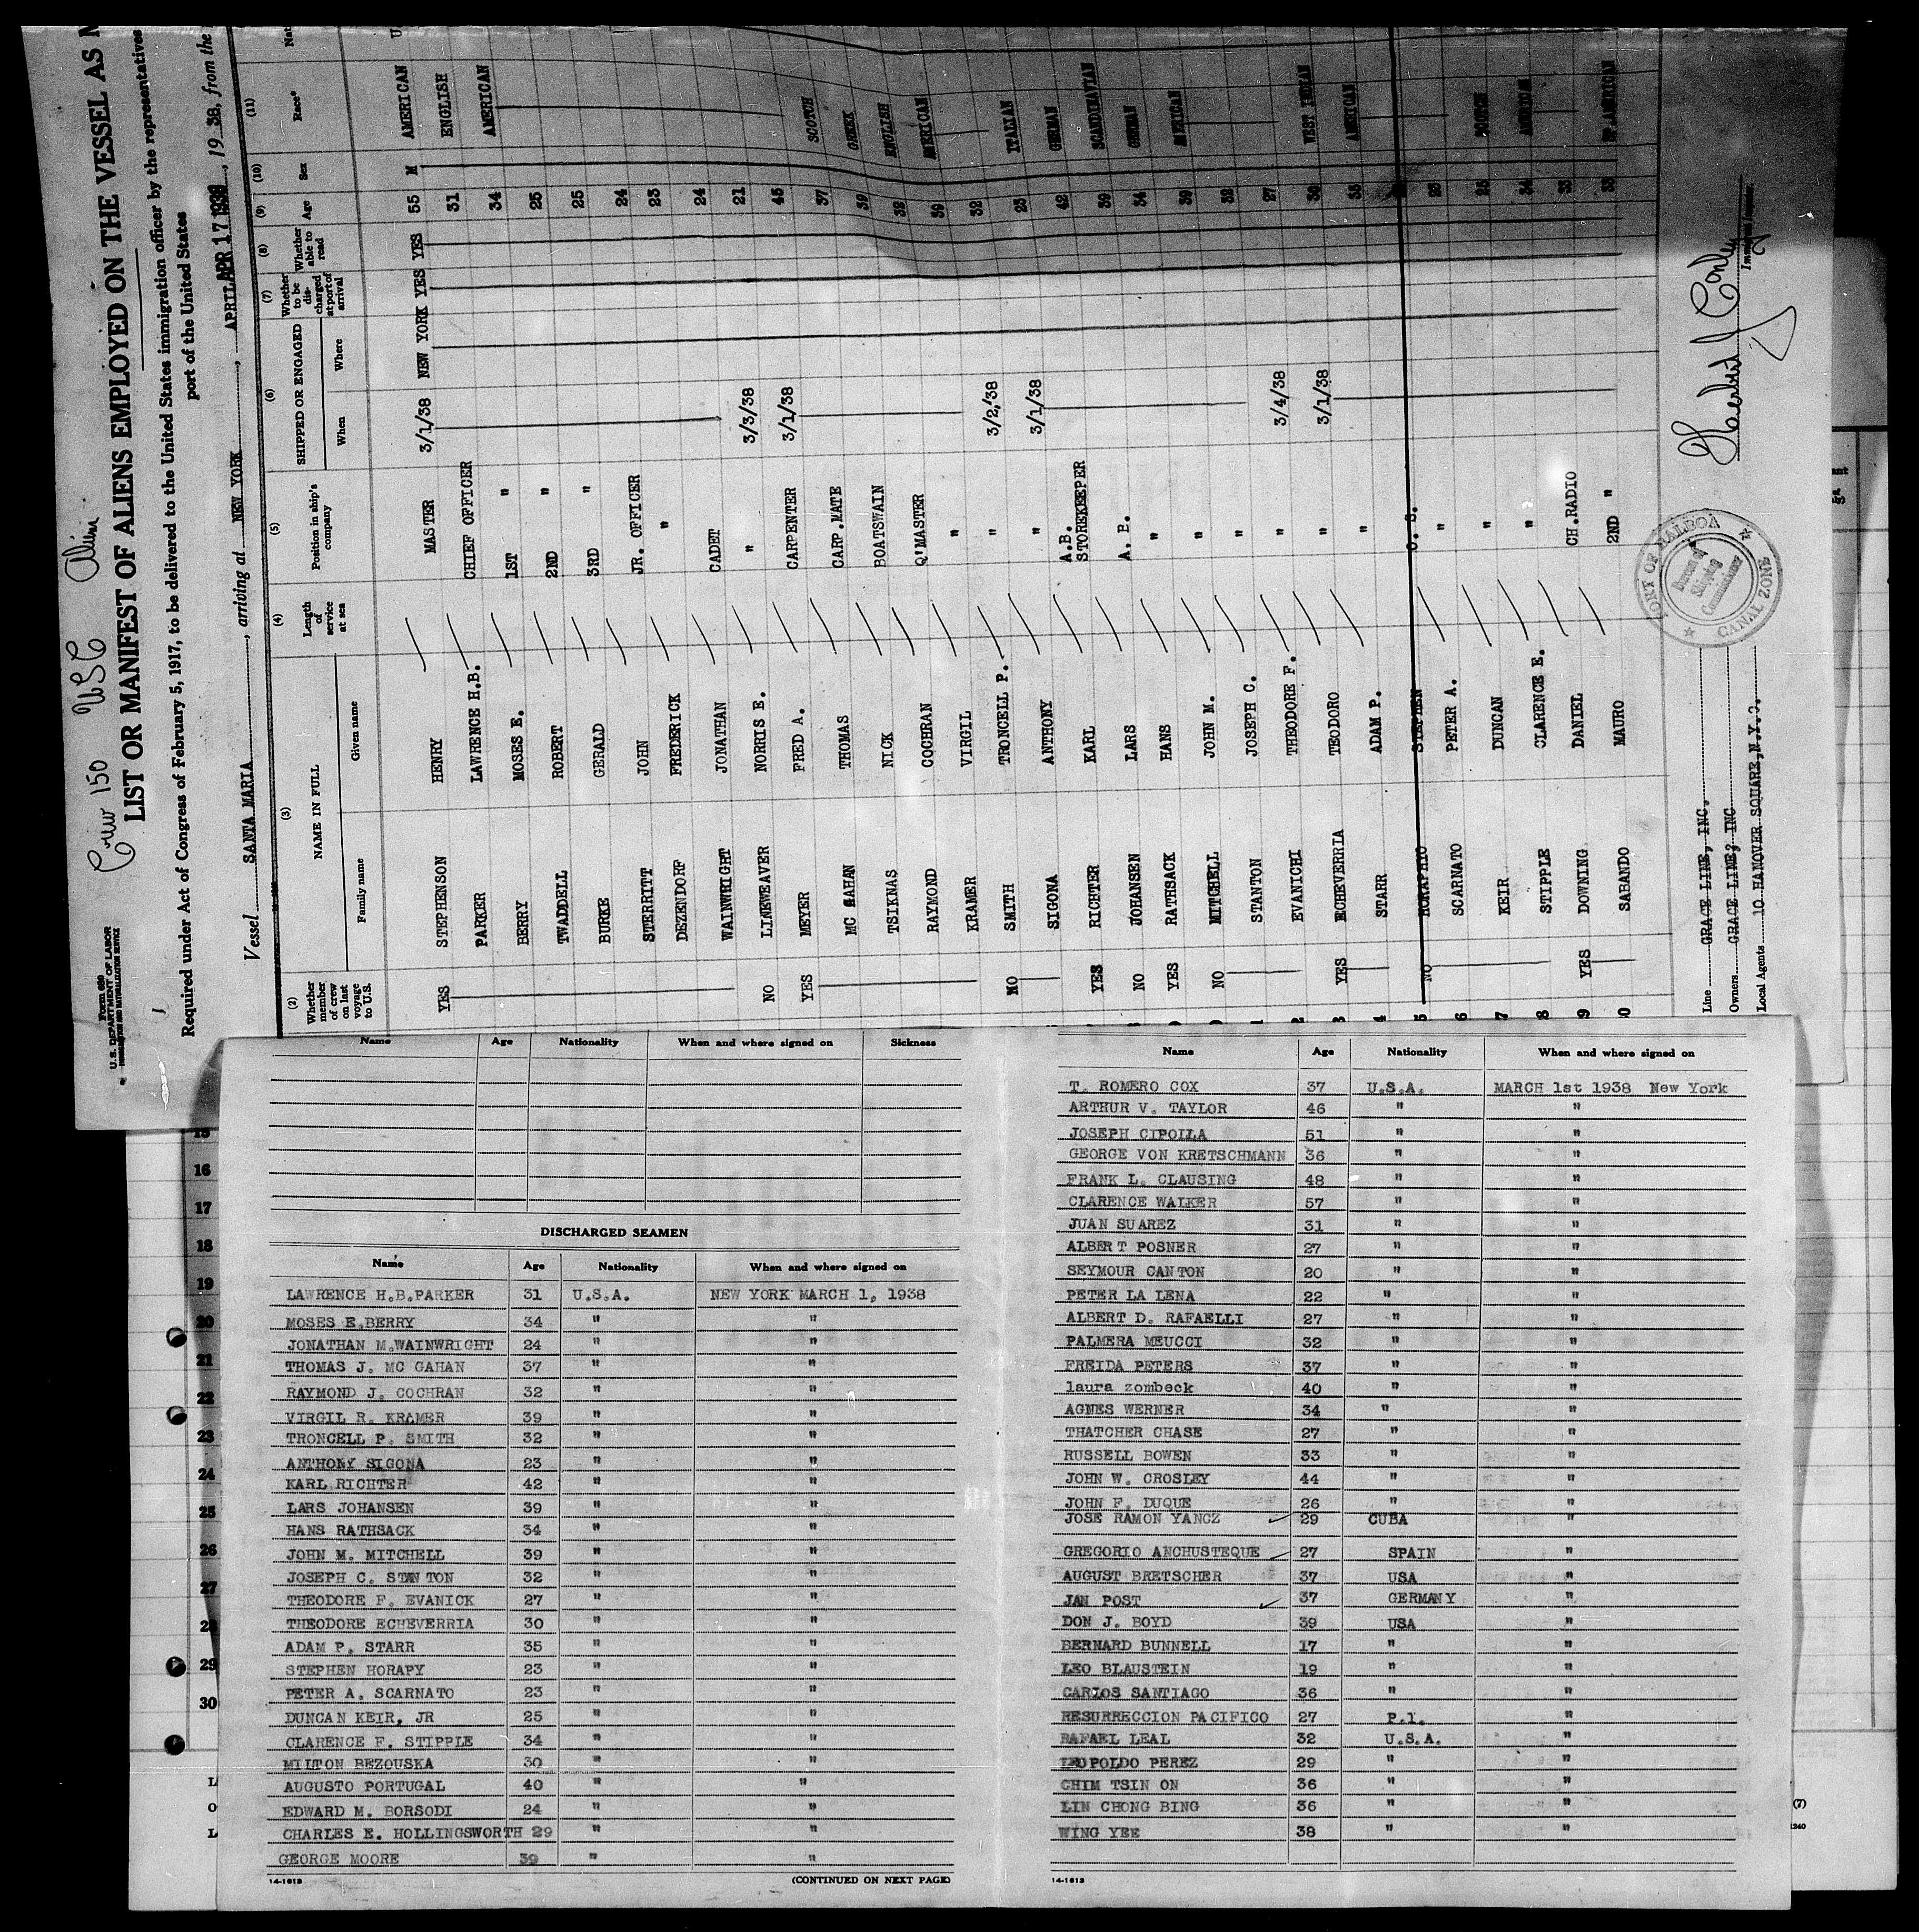 Crew 150 USC
Form 680
U.S. DEPARTMENT OF LABOR
IMMIGRATION AND NATURALIZATION SERVICE
LIST OR MANIFEST OF ALIENS EMPLOYED ON THE VESSEL AS
Required under Act of Congress of February 5, 1917, to be delivered to the United States immigration officer by the representatives
port of the United States
Vessel SANTA MARIA, arriving at NEW YORK, APRIL APR 17 1938, 1938, from the
(2) (3) (4) (5) (6) (7) (8) (9) (10) (11)
Whether member of crew on last voyage to U.S. NAME IN FULL Family name Given name Length of service at sea Position in ship's company SHIPPED OR ENGAGED When Where Whether to be discharged at port of arrival Whether able to read Age Sex Race*
YES STEPHENSON HENRY MASTER 3/1/38 NEW YORK YES YES 55 M AMERICAN
PARKER LAWRENCE H.B. CHIEF OFFICER 31 ENGLISH
BERRY MOSES E. 1ST " 34 AMERICAN
TWADDELL ROBERT 2ND " 25
BURKE GERALD 3RD " 25
STERRITT JOHN JR. OFFICER 24
DEZENDORF FREDERICK " 23
WAINWRIGHT JONATHAN CADET 24
NO LINEWEAVER NORRIS E. " 3/3/38 21
YES MEYER FRED A. CARPENTER 3/1/38 45
MC GAHAN THOMAS CARP.MATE 37 SCOTCH
TSIKNAS NICK BOATSWAIN 39 GREEK
RAYMOND COCHRAN Q'MASTER 32 ENGLISH
KRAMER VIRGIL " 39 AMERICAN
NO SMITH TRONCELL P. " 3/2/38 32
SIGONA ANTHONY " 3/1/38 23 ITALIAN
YES RICHTER KARL A.B. STOREKEEPER 42 GERMAN
NO JOHANSEN LARS A.B. 39 SCANDINAVIAN
YES RATHSACK HANS " 34 GERMAN
NO MITCHELL JOHN M. " 39 AMERICAN
STANTON JOSEPH C. " 32
EVANICHI THEODORE F. " 3/4/38 27
YES ECHEVERRIA TEODORO " 3/1/38 30 WEST INDIAN
STARR ADAM P. " 35 AMERICAN
NO HORAPHIO STEPHEN O.S.
SCARNATO PETER A. " 23
KEIR DUNCAN " 25 SCOTCH
STIPPLE CLARENCE E. " 34 AMERICAN
YES DOWNING DANIEL CH.RADIO 33
SABANDO MAURO 2ND " 33 SP.AMERICAN
Line GRACE LINE, INC.
Owners GRACE LINE, INC
Local Agents 10 HANOVER SQUARE, N.Y.C.
PORT OF BALBOA
Bureau of Shipping Commissioner
CANAL ZONE
Immigrant Inspector.
Name Age Nationality When and where signed on Sickness
DISCHARGED SEAMEN
Name Age Nationality When and where signed on
LAWRENCE H.B.PARKER 31 U.S.A. NEW YORK MARCH 1, 1938
MOSES E.BERRY 34 " "
JONATHAN M.WAINWRIGHT 24 " "
THOMAS J. MC GAHAN 37 " "
RAYMOND J. COCHRAN 32 " "
VIRGIL R. KRAMER 39 " "
TRONCELL P. SMITH 32 " "
ANTHONY SIGONA 23 " "
KARL RICHTER 42 " "
LARS JOHANSEN 39 " "
HANS RATHSACK 34 " "
JOHN M. MITCHELL 39 " "
JOSEPH C. STANTON 32 " "
THEODORE F. EVANICK 27 " "
THEODORE ECHEVERRIA 30 " "
ADAM P. STARR 35 " "
STEPHEN HORAPY 23 " "
PETER A. SCARNATO 23 " "
DUNCAN KEIR, JR 25 " "
CLARENCE F. STIPPLE 34 " "
MILTON BEZOUSKA 30 " "
AUGUSTO PORTUGAL 40 " "
EDWARD M. BORSODI 24 " "
CHARLES E. HOLLINGSWORTH 29 " "
GEORGE MOORE 39 " "
14-1613 (CONTINUED ON NEXT PAGE)
Name Age Nationality When and where signed on
T. ROMERO COX 37 U.S.A. MARCH 1st 1938 New York
ARTHUR V. TAYLOR 46 " "
JOSEPH CIPOLLA 51 " "
GEORGE VON KRETSCHMANN 36 " "
FRANK L. CLAUSING 48 " "
CLARENCE WALKER 57 " "
JUAN SUAREZ 31 " "
ALBERT POSNER 27 " "
SEYMOUR CANTON 20 " "
PETER LA LENA 22 " "
ALBERT D. RAFAELLI 27 " "
PALMERA MEUCCI 32 " "
FREIDA PETERS 37 " "
laura zombeck 40 " "
AGNES WERNER 34 " "
THATCHER CHASE 27 " "
RUSSELL BOWEN 33 " "
JOHN W. CROSLEY 44 " "
JOHN F. DUQUE 26 " "
JOSE RAMON YANCZ 29 CUBA "
GREGORIO ANCHUSTEQUE 27 SPAIN "
AUGUST BRETSCHER 37 USA "
JAN POST 37 GERMANY "
DON J. BOYD 39 USA "
BERNARD BUNNELL 17 " "
LEO BLAUSTEIN 19 " "
CARLOS SANTIAGO 36 " "
RESURRECCION PACIFICO 27 P.I. "
RAFAEL LEAL 32 U.S.A. "
LEOPOLDO PEREZ 29 " "
CHIM TSIN ON 36 " "
LIN CHONG BING 36 " "
WING YEE 38 " "
14-1613
15
16
17
18
19
20
21
22
23
24
25
26
27
28
29
30
(7)
1240